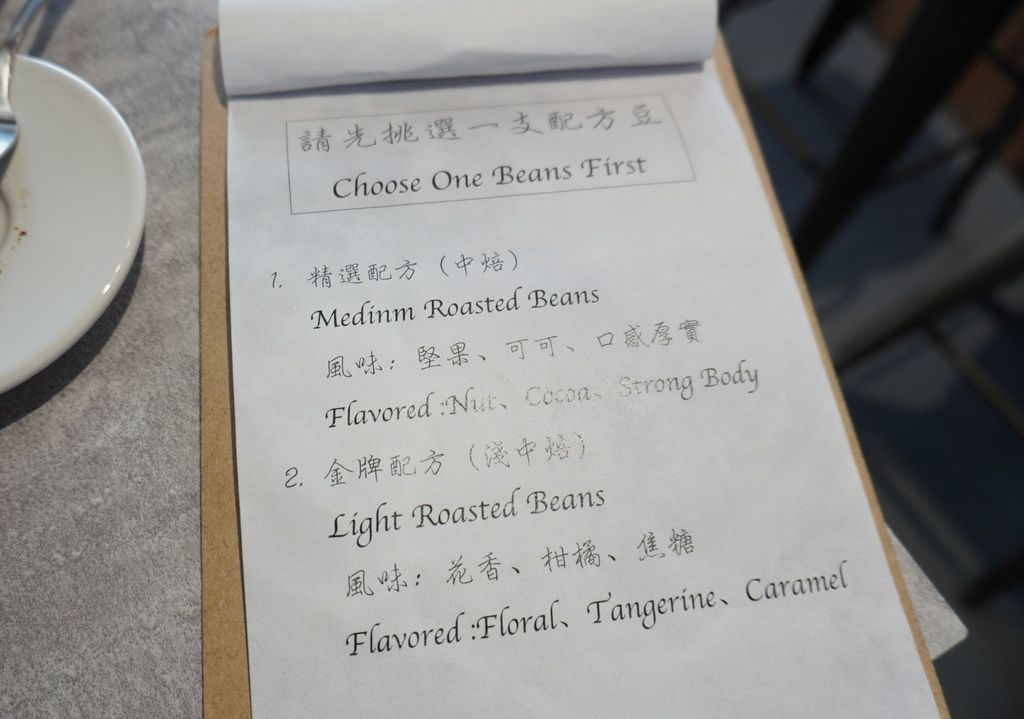 請先挑選一支配方豆
Choose One Beans First
1. 精選配方（中焙）
Medinm Roasted Beans
風味：堅果、可可、口感厚實
Flavored :Nut、Cocoa、Strong Body
2. 金牌配方（淺中焙）
Light Roasted Beans
風味：花香、柑橘、焦糖
Flavored :Floral、Tangerine、Caramel